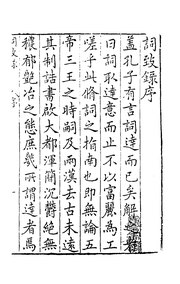 詞致錄序
蓋孔子有言詞達而已矣解者
曰詞取達意而止不以富麗為工
嗟乎此脩詞之指南也即無論五
帝三王之時嗣及兩漢去古未遠
其制誥書啟大都渾簡沉欝絕無
穠郁艷冶之態庶幾所謂達者焉